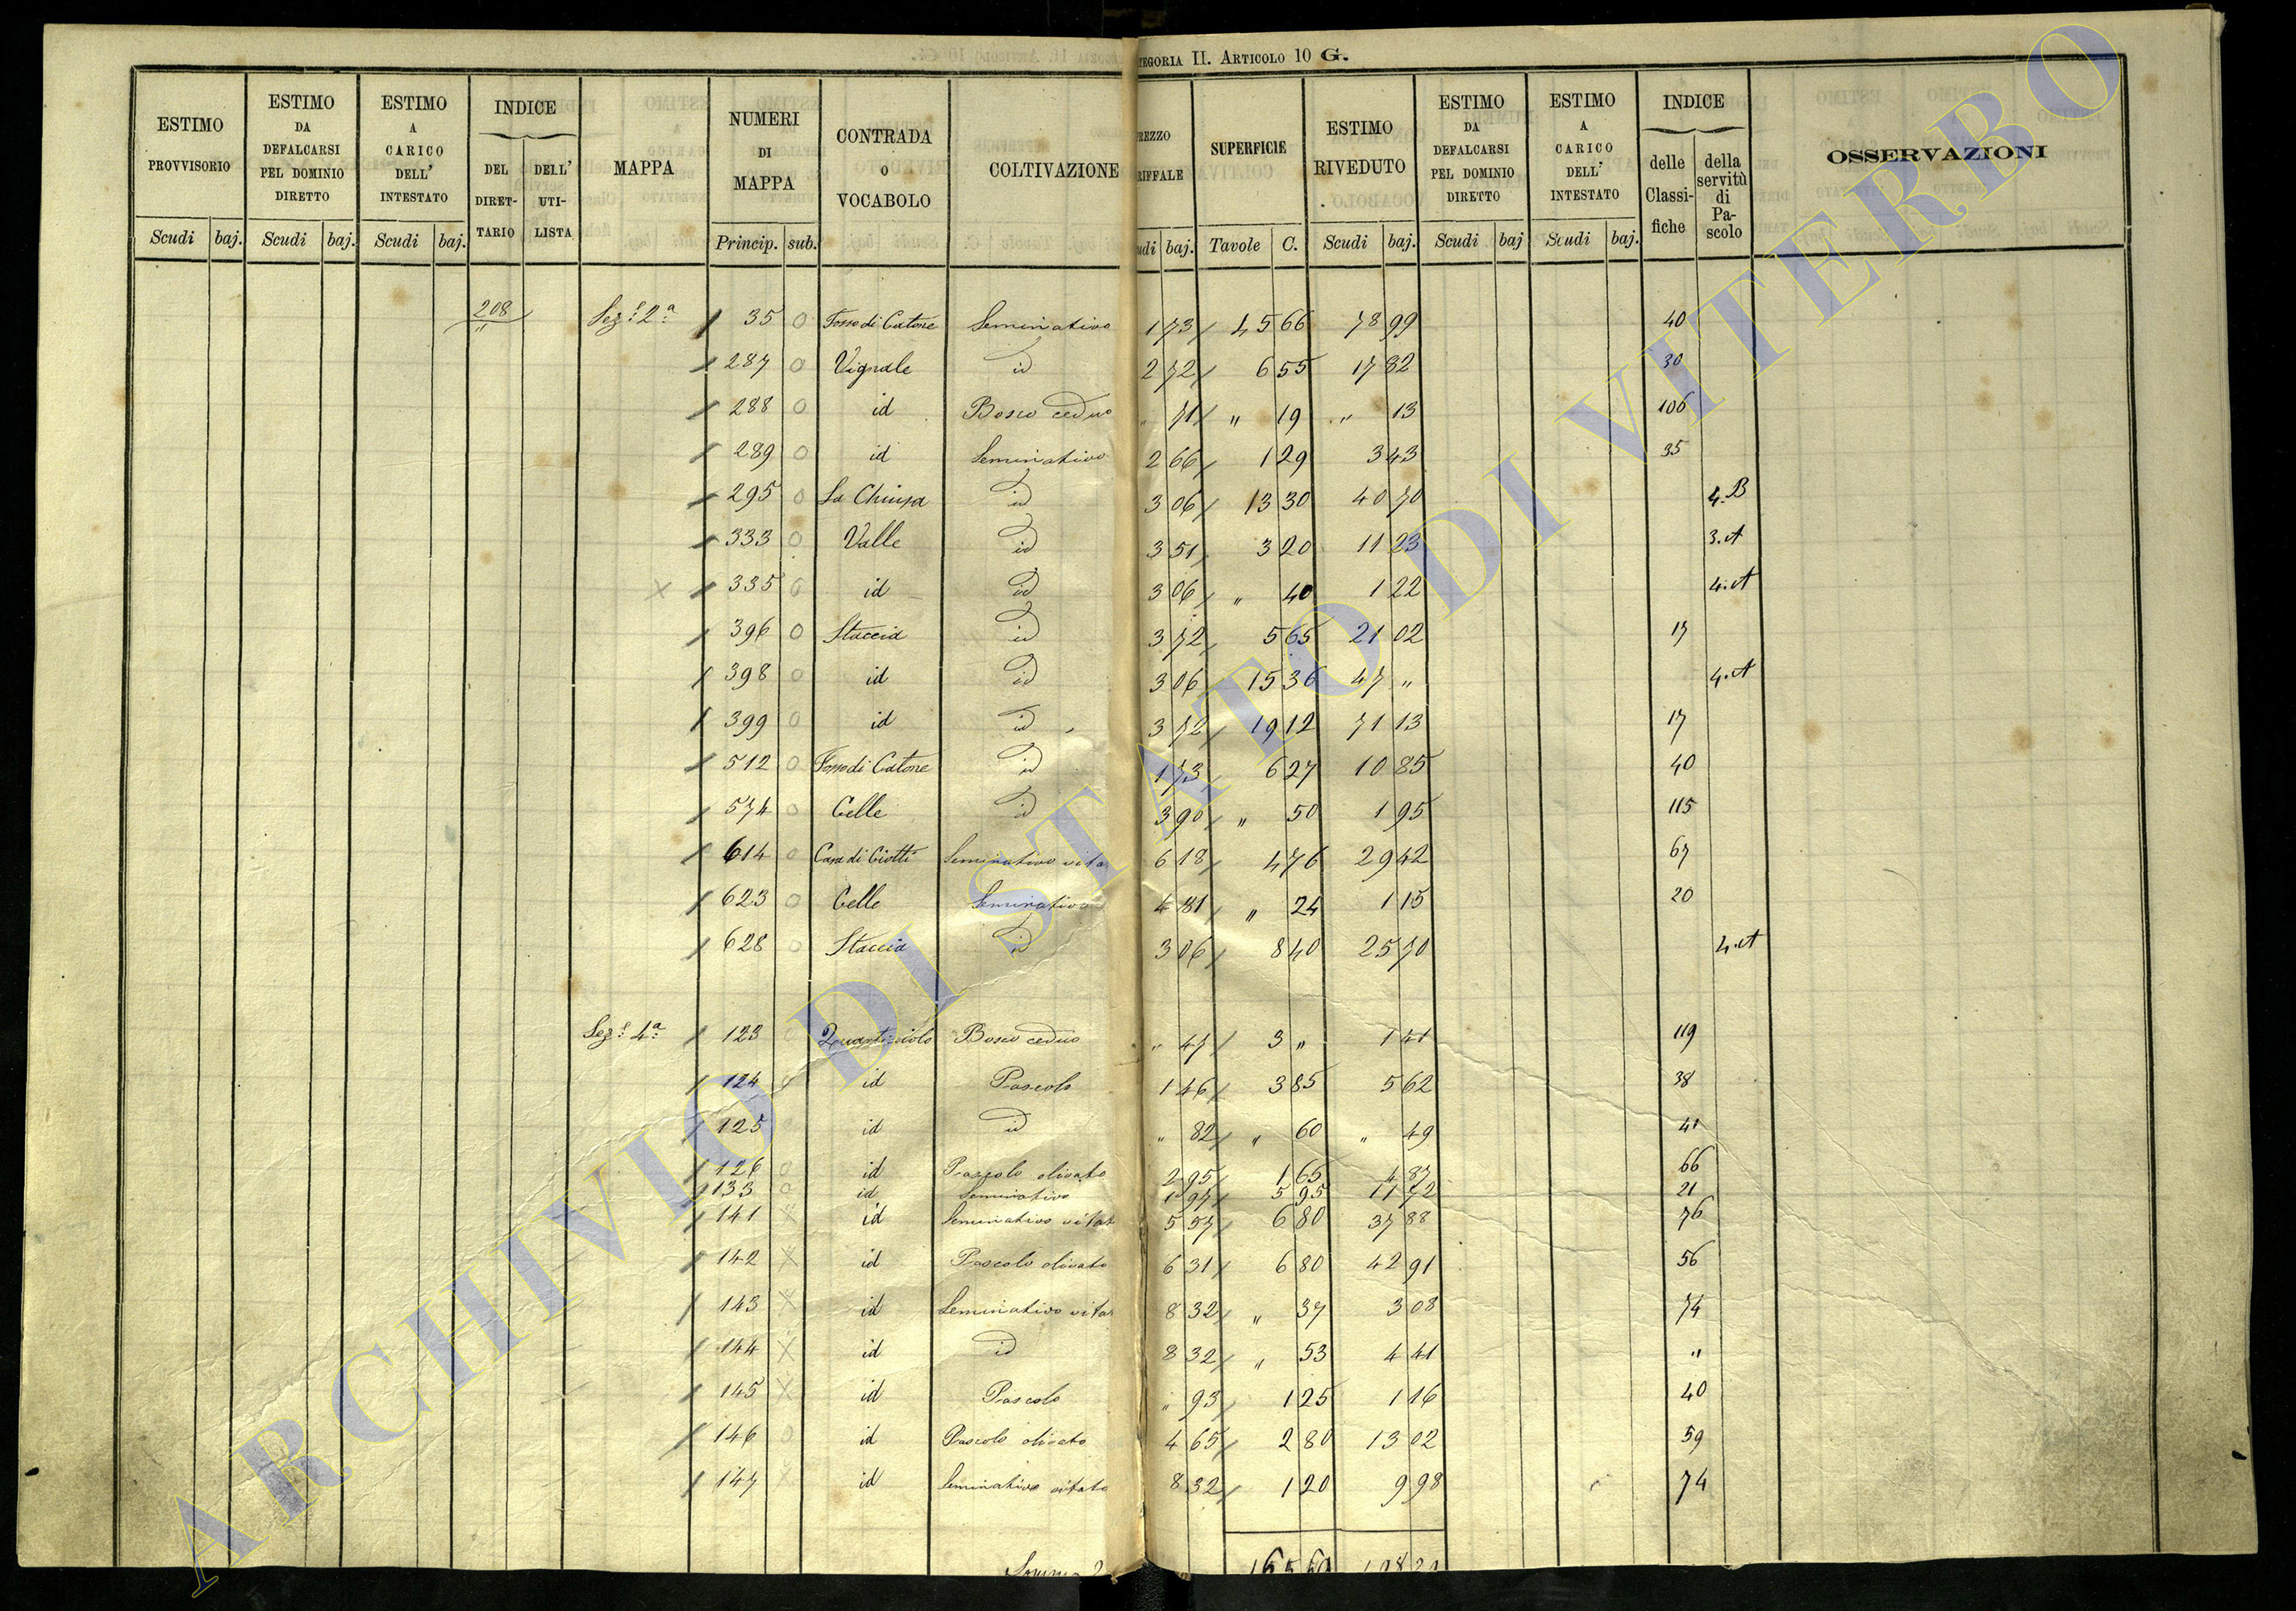 CATEGORIA II. ARTICOLO 10 G.
ESTIMO PROVVISORIO | ESTIMO DA DEFALCARSI PEL DOMINIO DIRETTO | ESTIMO A CARICO DELL' INTESTATO | INDICE | MAPPA | NUMERI DI MAPPA | CONTRADA O VOCABOLO | COLTIVAZIONE | SUPERFICIE | ESTIMO RIVEDUTO | ESTIMO DA DEFALCARSI PEL DOMINIO DIRETTO | ESTIMO A CARICO DELL' INTESTATO | INDICE | OSSERVAZIONI
DEL DIRET-TARIO | DELL' UTI-LISTA | delle Classi-fiche | della servitù di Pa-scolo
Scudi baj. | Scudi baj. | Scudi baj. | Princip. sub. | baj. | Tavole C. | Scudi baj. | Scudi baj | Scudi baj.
208 " Sez.e 2a 35 0 Fosso di Catone Seminativo 1 73 / 45 66 78 99 40
287 0 Vignale id 2 72 / 6 55 17 82 30
288 0 id Bosco ceduo " 71 / " 19 " 13 106
289 0 id Seminativo 2 66 / 1 29 3 43 35
295 0 La Chiusa id 3 06 / 13 30 40 70 4.B
333 0 Valle id 3 51 / 3 20 11 23 3.A
X 335 0 id id 3 06 / " 40 1 22 4.A
396 0 Staccia id 3 72 / 5 65 21 02 17
398 0 id id 3 06 15 36 47 " 4.A
399 0 id id 3 72 / 19 12 71 13 17
512 0 Fosso di Catone id 1 73 / 6 27 10 85 40
574 0 Celle id 3 90 / " 50 1 95 115
614 0 Casa di Ciotti Seminativo vita 6 18 / 4 76 29 42 67
623 0 Celle Seminativo 4 81 / " 24 1 15 20
628 0 Staccia id 3 06 / 8 40 25 70 4.A
Sez.e 4a 123 0 Quarticciolo Bosco ceduo " 47 / 3 " 1 41 119
124 0 id Pascolo 1 46 / 3 85 5 62 38
125 id id " 82 / " 60 " 49 41
126 0 id Pascolo olivato 2 95 / 1 65 4 87 66
133 0 id Seminativo 1 97 / 5 95 11 72 21
141 X id Seminativo vitat 5 57 / 6 80 37 88 76
142 X id Pascolo olivato 6 31 / 6 80 42 91 56
143 X id Seminativo vitat 8 32 / " 37 3 08 74
144 X id id 8 32 / " 53 4 41 "
145 X id Pascolo " 93 / 1 25 1 16 40
146 0 id Pascolo olivato 4 65 / 2 80 13 02 59
147 X id Seminativo vitato 8 32 / 1 20 9 98 74
Somma
ARCHIVIO DI STATO DI VITERBO